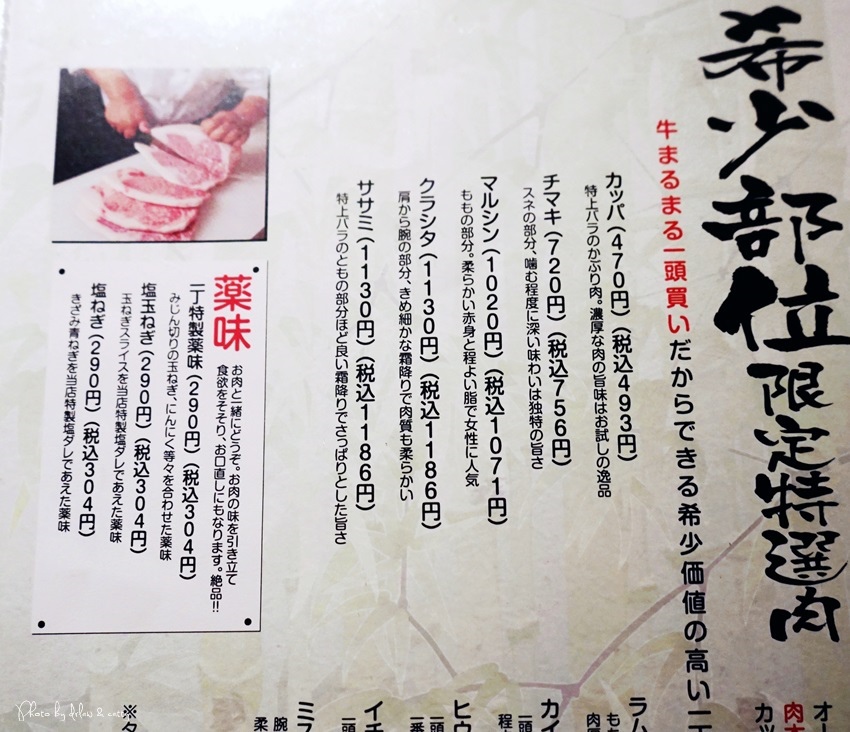 希少部位限定特選肉
牛まるまる一頭買いだからできる希少価値の高い一
カッパ(470円)(税込493円)
特上バラのかぶり肉。濃厚な肉の旨味はお試しの逸品
チマキ(720円)(税込756円)
スネの部分、噛む程度に深い味わいは独特の旨さ
マルシン(1020円)(税込1071円)
ももの部分。柔らかい赤身と程よい脂で女性に人気
クラシタ(1130円)(税込1186円)
肩から腕の部分、きめ細かな霜降りで肉質も柔らかい
ササミ(1130円)(税込1186円)
特上バラのともの部分ほど良い霜降りでさっぱりとした旨さ
薬味
お肉と一緒にどうぞ。お肉の味を引き立て
食欲をそそり、お口直しにもなります。絶品!!
一丁特製薬味(290円)(税込304円)
みじん切りの玉ねぎ、にんにく等々を合わせた薬味
塩玉ねぎ(290円)(税込304円)
玉ねぎスライスを当店特製塩ダレであえた薬味
塩ねぎ(290円)(税込304円)
きざみ青ねぎを当店特製塩ダレであえた薬味
オー
肉本
カッ
ラム
もも
肉厚
カイ
一頭
程
ヒウ
一頭
一番
イチ
一頭
ミス
腕
柔
※タ
Photo by